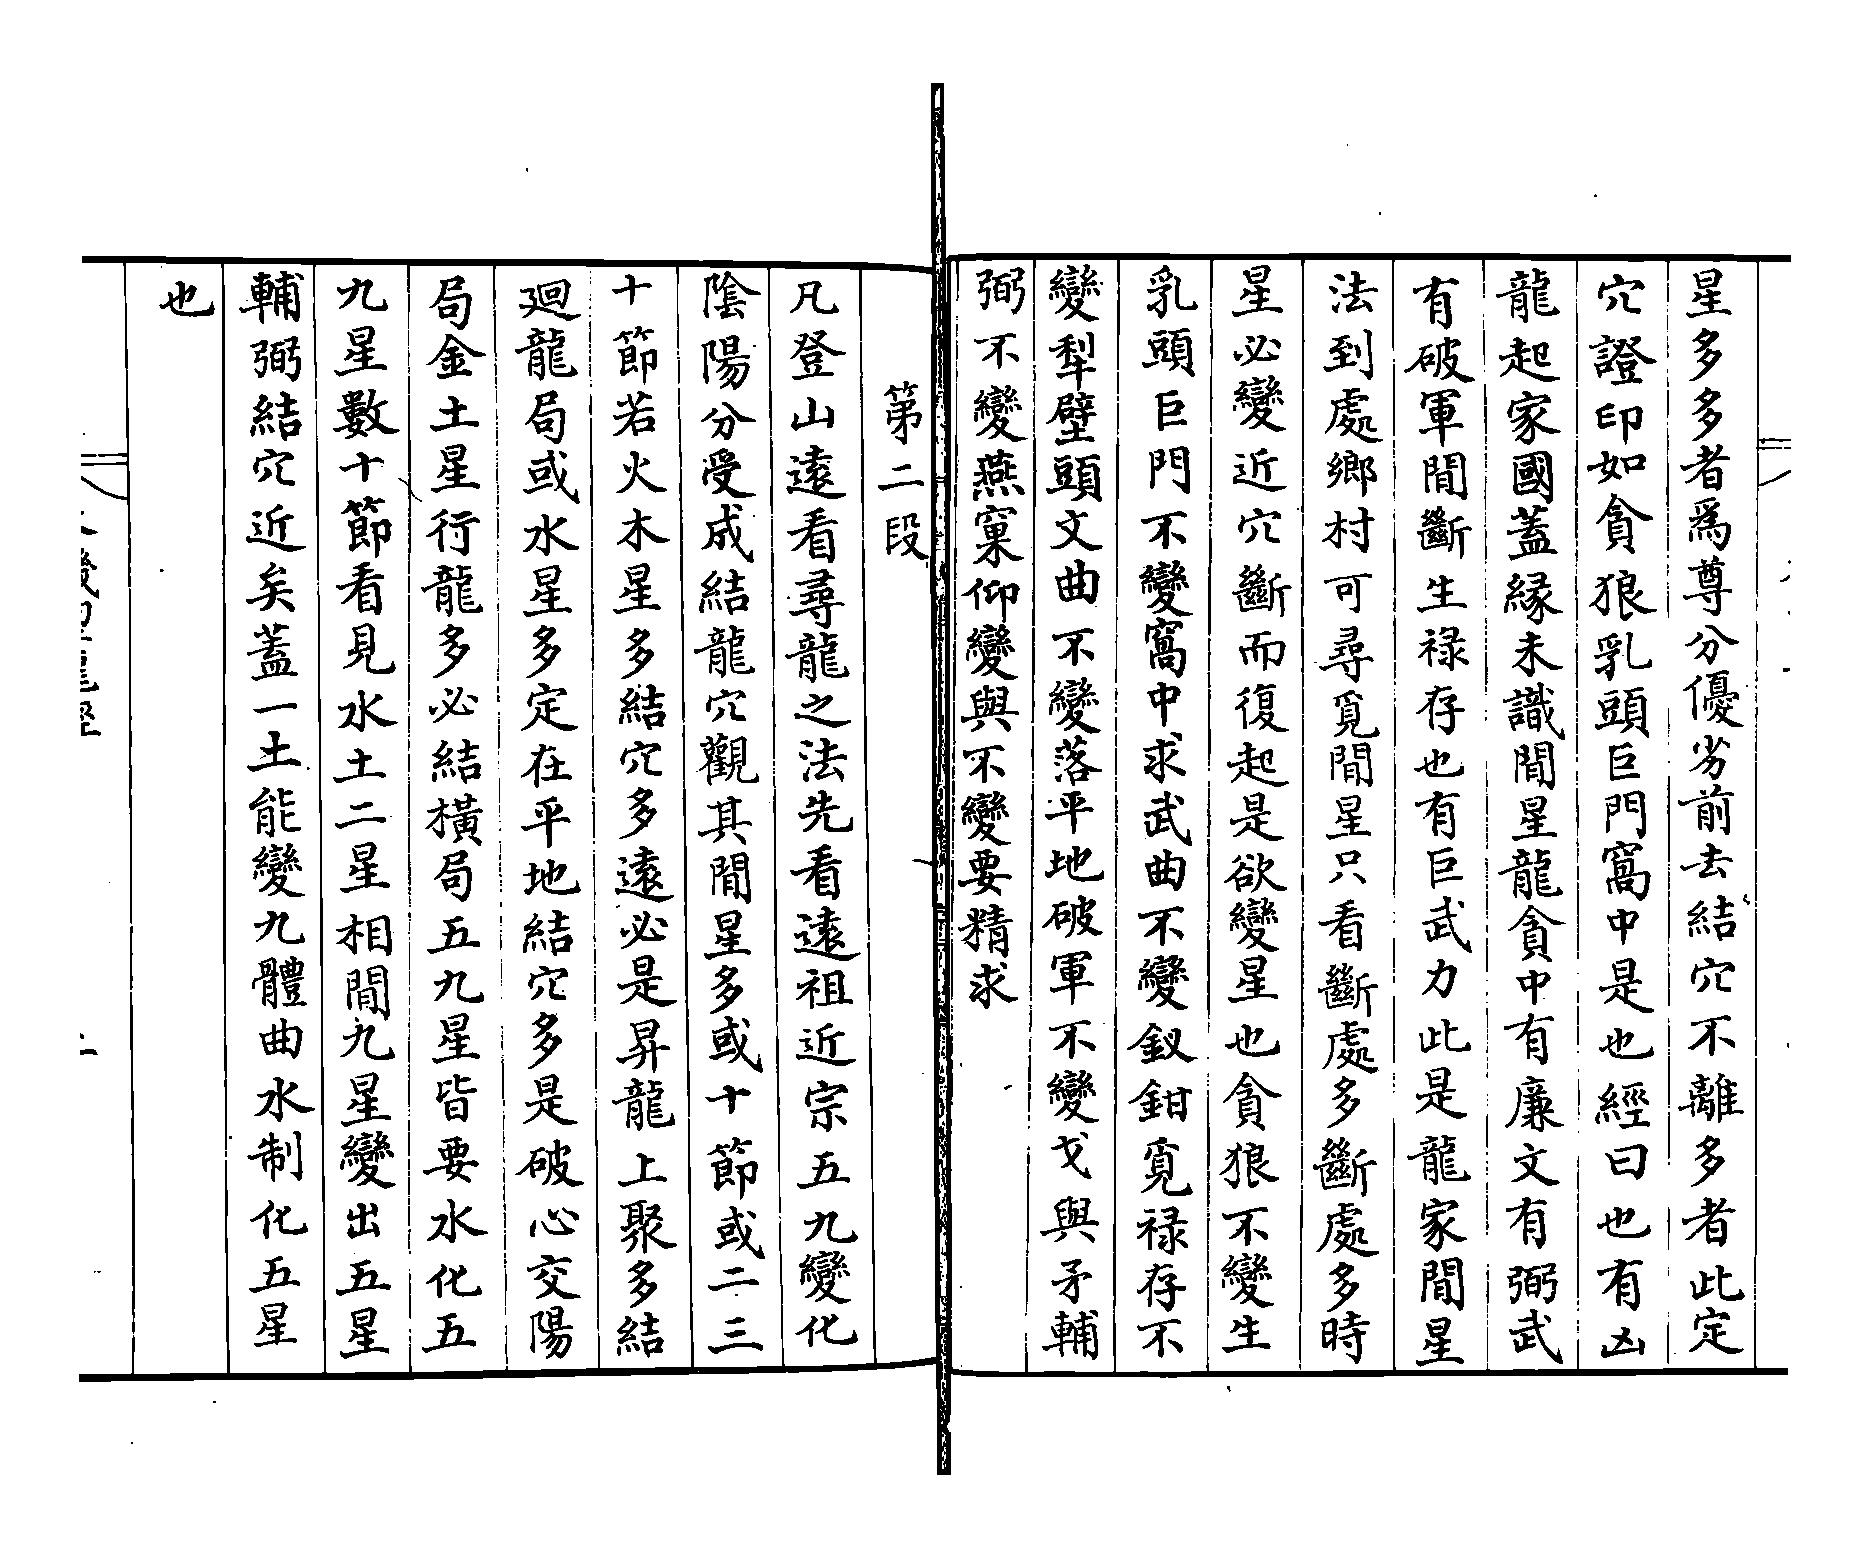 星多多者爲尊分優劣前去結穴不離多者此定
穴證印如貪狼乳頭巨門窩中是也經曰也有凶
龍起家國蓋緣未識間星龍貪中有廉文有弼武
有破軍間斷生禄存也有巨武力此是龍家間星
法到處鄉村可尋覓間星只看斷處多斷處多時
星必變近穴斷而復起是欲變星也貪狼不變生
乳頭巨門不變窩中求武曲不變釵鉗覓禄存不
變犁壁頭文曲不變落平地破軍不變戈與矛輔
弼不變燕窠仰變與不變要精求
第二段
凡登山遠看尋龍之法先看遠祖近宗五九變化
陰陽分受成結龍穴觀其間星多或十節或二三
十節若火木星多結穴多遠必是昇龍上聚多結
廻龍局或水星多定在平地結穴多是破心交陽
局金土星行龍多必結橫局五九星皆要水化五
九星數十節看見水土二星相間九星變出五星
輔弼結穴近矣蓋一土能變九體曲水制化五星
也